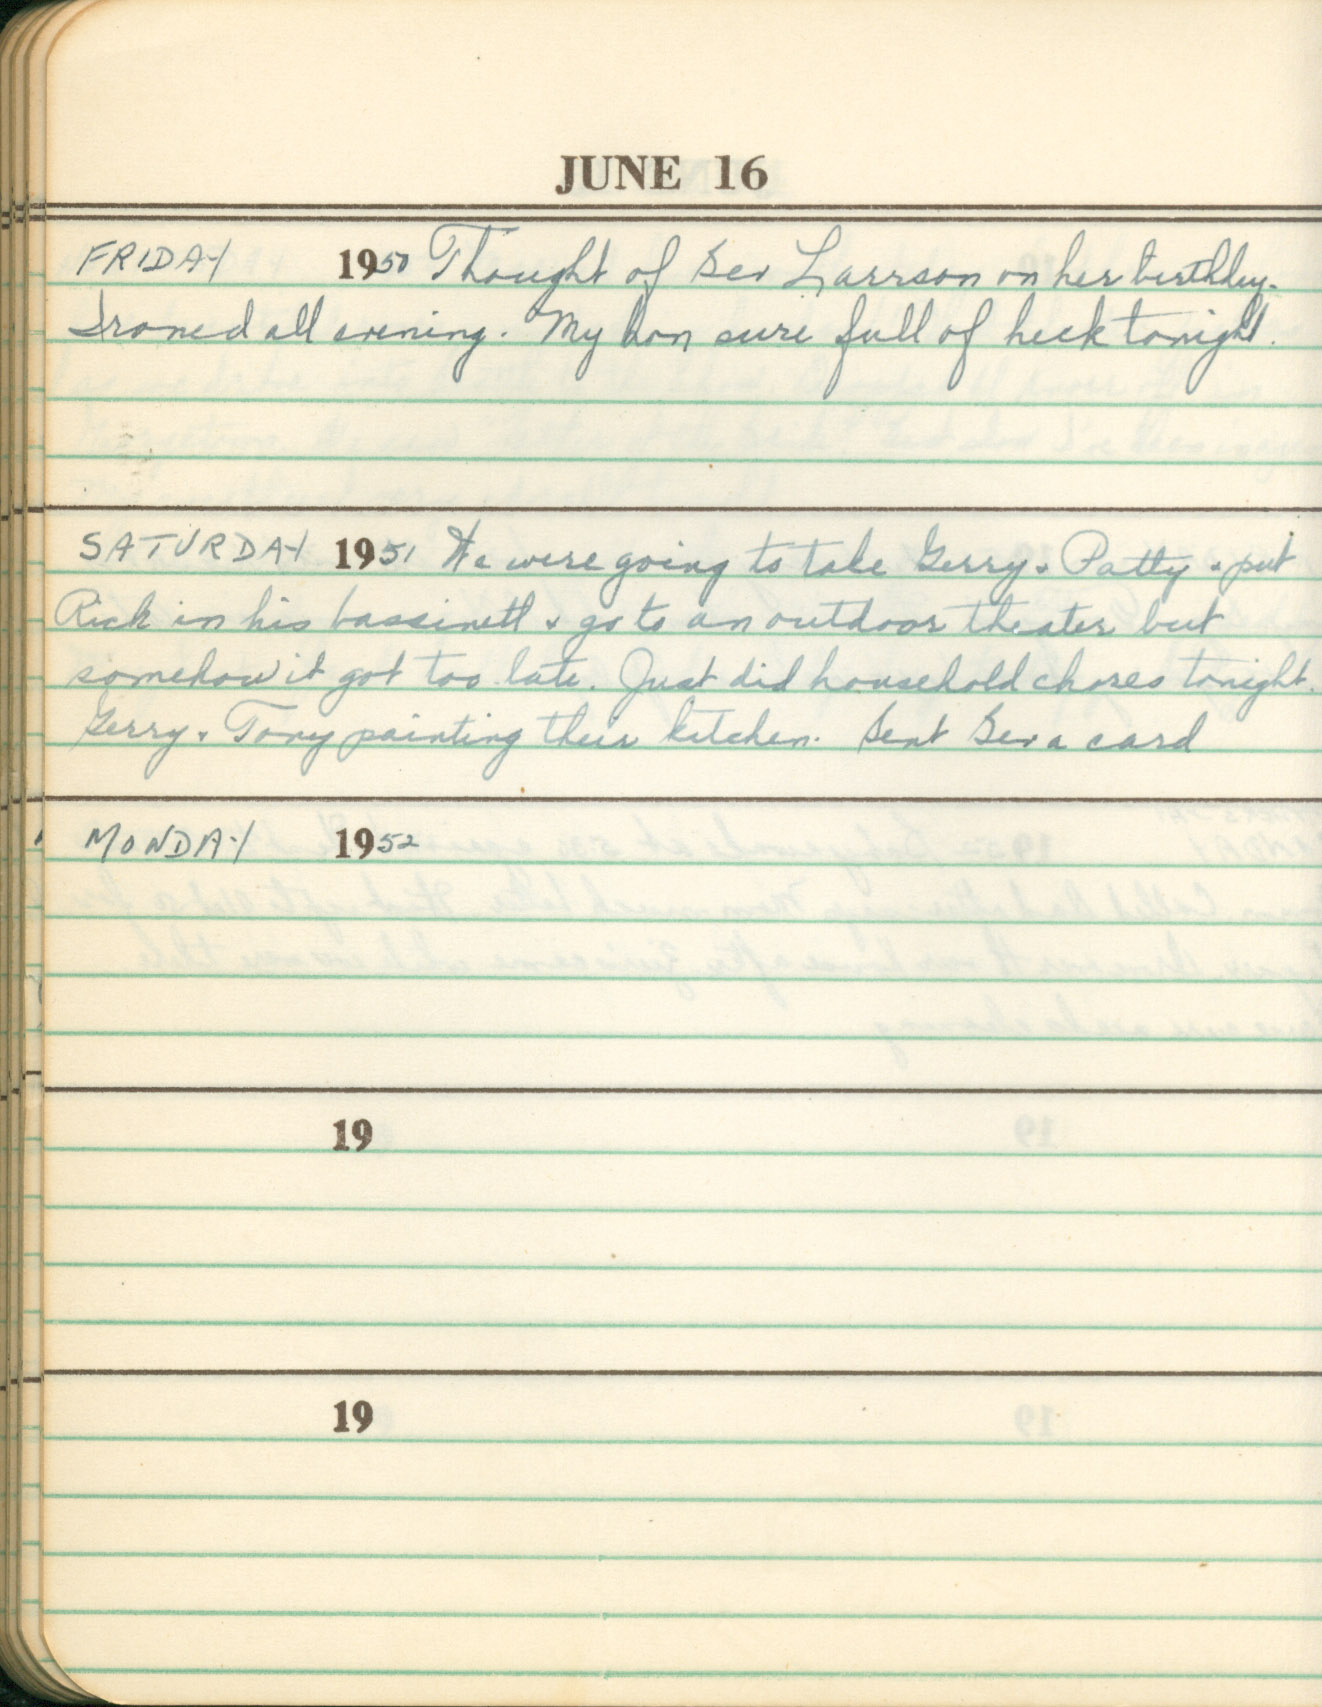 JUNE 16
FRIDAY 1950 Thought of Bev Larrson on her birthday.
Ironed all evening. My hon sure full of heck tonight.
SATURDAY 1951 We were going to take Gerry & Patty & put
Rick in his bassinett & go to an outdoor theater but
somehow it got too late. Just did household chores tonight.
Gerry & Tony painting their kitchen. Sent Bev a card
MONDAY 1952
19
19